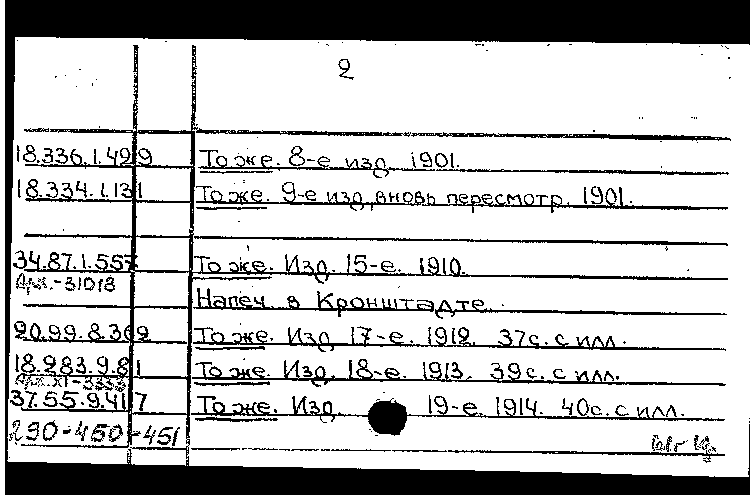 2
18.336.1.499 То же. 8-е изд. 1901.
18.334.1.131 То же. 9-е изд, вновь пересмотр. 1901.
34.87.1.557 То же. Изд. 15-е. 1910.
Арх.-31013
Напеч. в Кронштадте.
20.99.8.369 То же. Изд. 17-е. 1912. 37с. с илл.
18.283.9.81 То же. Изд. 18-е. 1913. 39с. с илл.
37.55.9.417 То же. Изд. 19-е. 1914. 40с. с илл.
290-450-451